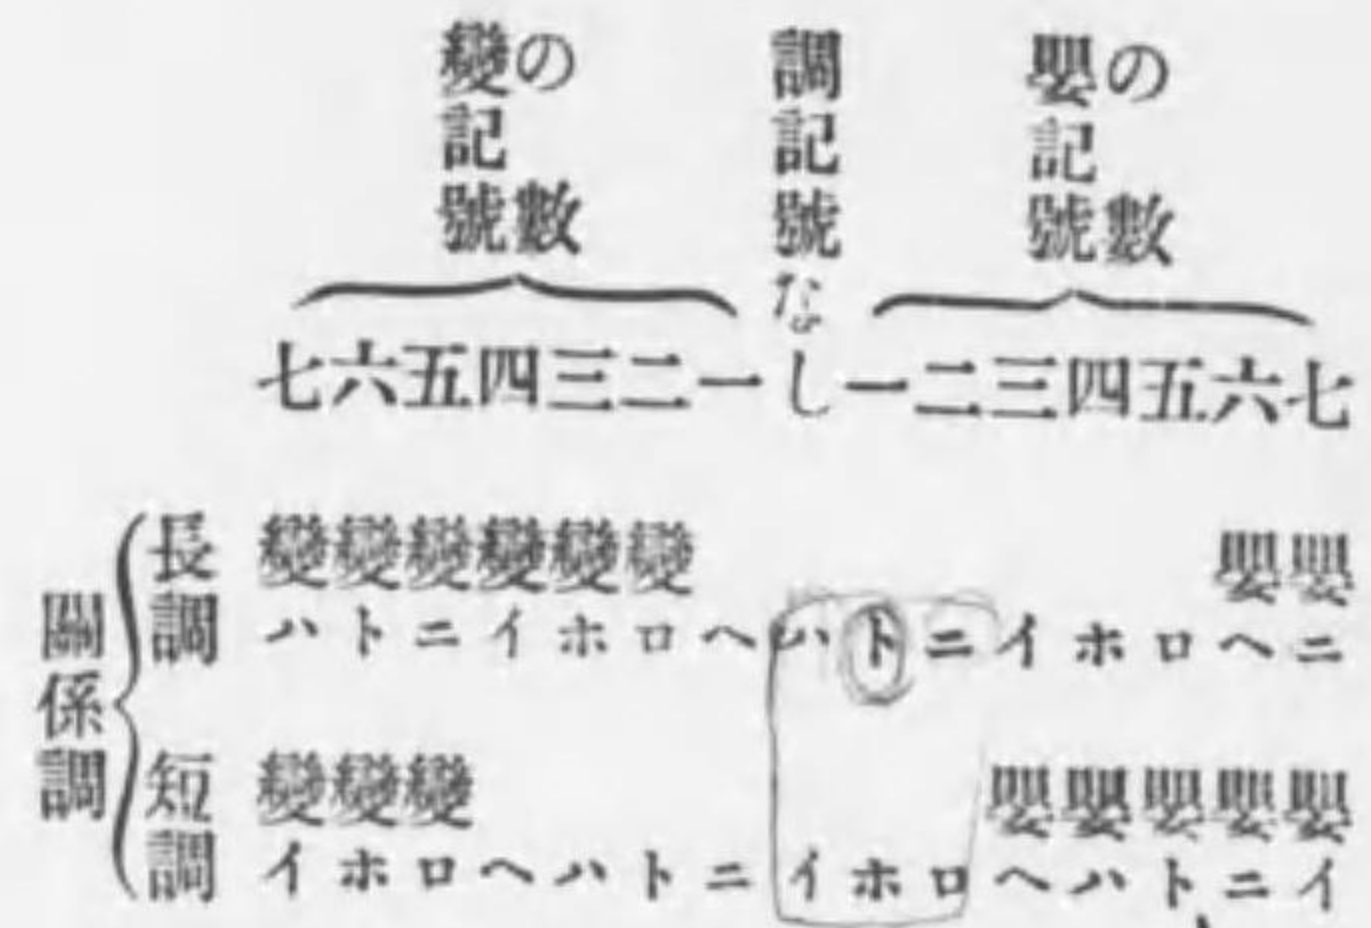 變記號の數
調記號なし
嬰記號の數
七六五四三二一 一二三四五六七
關係調
長調
變變變變變變 嬰嬰
ハトニイホロヘハトニイホロヘニ
短調
變變變 嬰嬰嬰嬰嬰
イホロヘハトニイホロヘハトニイ